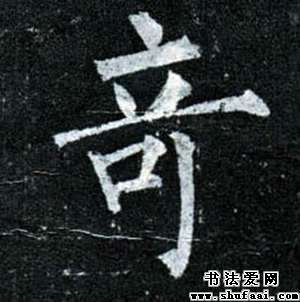 竒
书法爱网
www.shufaai.com